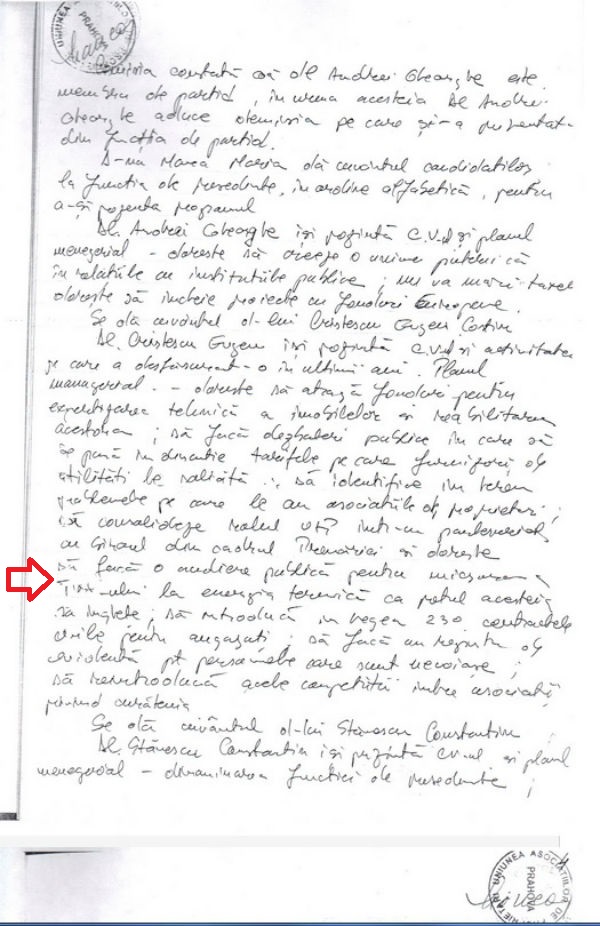 UNIUNEA ASOCIAȚIILOR DE PROPRIETARI PRAHOVA
Comisia constată că dl Andrei Gheorghe este
membru de partid, în urma acesteia Dl Andrei
Gheorghe aduce demisia pe care și-a prezentat-
din funcția de partid.
D-na Marea Maria dă cuvîntul candidatilor
la functia de presedinte, în ordine alfabetică, pentru
a-și prezenta programul
Dl. Andrei Gheorghe își prezintă C.V.ul și planul
menegerial - doreste să creeze o uniune puternică
în relatiile cu institutiile publice; nu va mari taxel
dorește să încheie proiecte cu fonduri Europene.
Se dă cuvîntul d-lui Cristescu Eugen Costin
Dl. Cristescu Eugen își prezintă C.V.ul si activitatea
pe care a desfasurat-o în ultimii ani. Planul
managerial. - doreste să atragă fonduri pentru
expertizarea tehnică a imobilelor si reabilitarea
acestora; să facă dezbateri publice în care să
se pună în discutie tarifele pe care furnizorii de
utilități le solicită; să identifice în teren
problemele pe care le au asociatiile de proprietari;
să consolideze rolul într-un parteneriat
cu biroul din cadrul Primăriei si doreste
să facă o audiere publică pentru
la energia termică ca prețul acesteia
sa înglete; să introducă în legea 230 contractele
civile pentru angajați; să facă un registru de
evidentă pt persoanele care sunt nevoiase;
să reintroducă acele competiții între asociații
privind curătenia
Se dă cuvântul d-lui Stănescu Constantin
Dl. Stănescu Constantin își prezintă CV-ul si planul
menegerial - functiei de presedinte;
4
UNIUNEA ASOCIAȚIILOR DE PROPRIETARI PRAHOVA